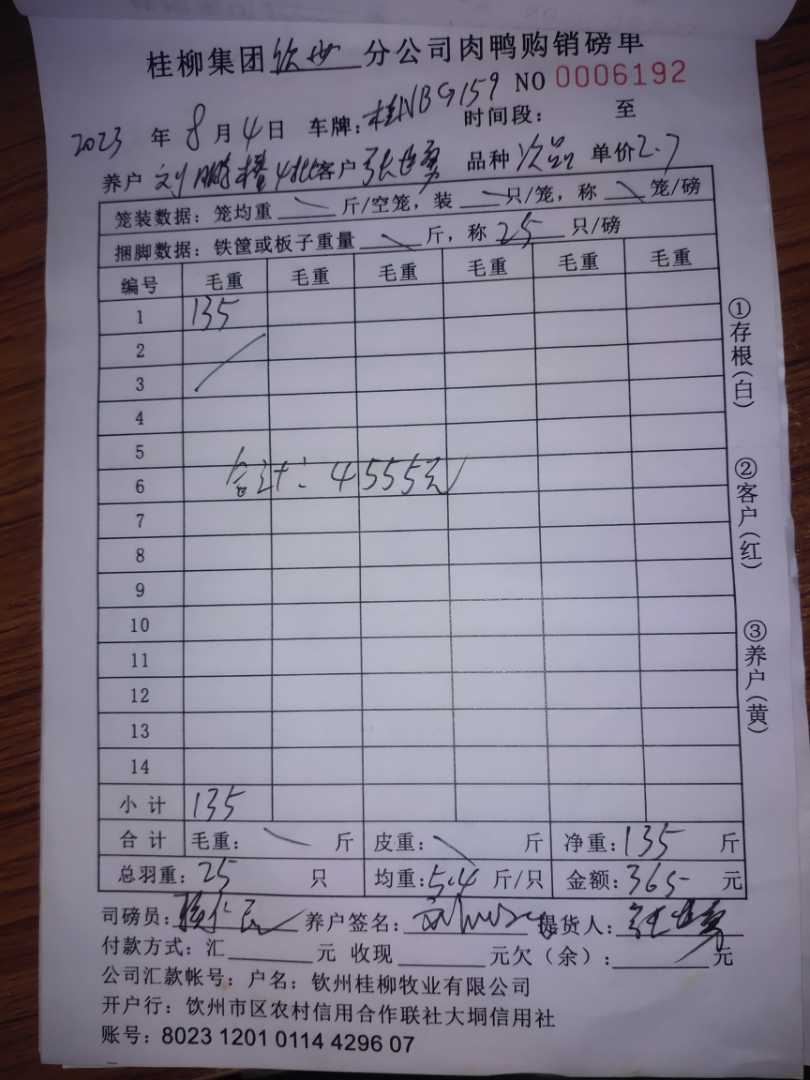 桂柳集团钦州分公司肉鸭购销磅单
NO 0006192
2023 年 8 月 4 日 车牌：桂NBG159 时间段： 至
养户 刘鹏 4批客户 张世勇 品种 次品 单价2.7
笼装数据：笼均重 斤/空笼，装 只/笼，称 笼/磅
捆脚数据：铁筐或板子重量 斤，称 25 只/磅
编号 毛重 毛重 毛重 毛重 毛重 毛重
1 135
2
3
4
5
6
合计：4555元
7
8
9
10
11
12
13
14
小 计 135
合 计 毛重： 斤 皮重： 斤 净重：135 斤
总羽重：25 只 均重：5.4 斤/只 金额：365 元
司磅员： 养户签名： 提货人：张世勇
付款方式：汇 元 收现 元欠（余）： 元
公司汇款帐号：户名：钦州桂柳牧业有限公司
开户行：饮州市区农村信用合作联社大垌信用社
账号：8023 1201 0114 4296 07
①存根（白）
②客户（红）
③养户（黄）